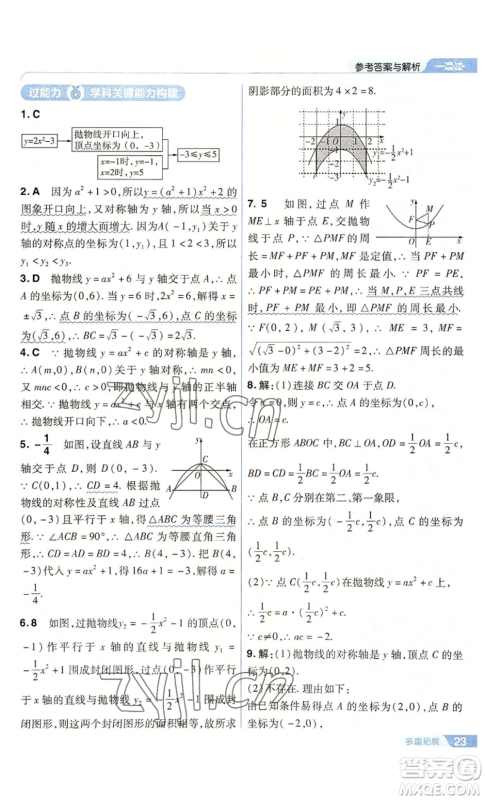 参考答案与解析
过能力
学科关键能力构建
1. C
y=2x²-3
抛物线开口向上，
顶点坐标为(0,-3)
x=-1时,y=-1;
x=2时,y=5
-3≤y≤5
2. A 因为 a²+1>0,所以 y=(a²+1)x²+2 的
图象开口向上,又对称轴为 y 轴,当 x>0 时,y
随 x 的增大而增大.因为 A(-1,y₁)关于
y 轴的对称点的坐标为(1,y₁),且 1<2<3,所以
y₁<y₂<y₃.
3. D 抛物线 y=ax²+6 与 y 轴交于点 A,∴点
A 的坐标为(0,6).当 y=6 时,2x²=6,∴ x=
±√3,∴点 B 的坐标为(-√3,6),点 C 的坐标
为(√3,6),∴ BC=√3-(-√3)=2√3.
4. C ∵抛物线 y=ax²+c 的对称轴为 y 轴,
∴A(m,n),B(-m,n)关于 y 轴对称.又 mnc<
0,
∴抛物线与 y 轴的正半轴
相交,∴抛物线 y=ax²+c 与 x 轴有两个交点,
∴抛物线开口向下,∴a<0.
5. -1/4 如图,设直线 AB 与 y
轴交于点 D,则 D(0,-3).
∵C(0,1),∴CD=4.根据抛
物线的对称性及直线 AB 过点
(0,-3)且平行于 x 轴,得△ABC 为等腰三角
形.∵∠ACB=90°,∴△ABC 为等腰直角三角
形,∴CD=AD=BD=4,∴B(4,-3).将B(4,
-3)代入 y=ax²+1,得 16a+1=-3,∴a=-
1/4.
6. 8 如图,过抛物线y₂=-1/2x²-1 的顶点(0,
-1)作平行于 x 轴的直线与抛物线 y₁=
-1/2x²+1 围成封闭图形,过点(0,-3)作平行
于 x 轴的直线与抛物线 y₂=-1/2x²-1 围成封
闭图形,则这两个封闭图形的面积相等,故所求
阴影部分的面积为 4×2=8.
7. 5 如图,过点 M 作
ME⊥x 轴于点 E,交抛物
线于点 P,∵△PMF 的周长
=MF+PF+PM,MF 是定值,∴当 PF+PM
最小时,△PMF 的周长最小.∵PF=PE,
∴PF+PM=PE+PM,∴当 M,P,E 三点共线
时,PF+PM 最小,此时△PMF 的周长最小.
∵F(0,2),M(√3,3),∴ME=3,MF=
√((√3-0)²+(3-2)²)=2,∴△PMF 周长的最
小值=ME+MF=3+2=5.
8. 解:(1)连接 BC 交 OA 于点 D.
令 x=0,则 y=c,∴OA=c.
在正方形 ABOC 中,BC⊥OA,OD=1/2OA=1/2c,
BD=CD=1/2BC=1/2OA=1/2c.
∵点 B,C 分别在第二、第一象限,
∴点 B 的坐标为(-1/2c,1/2c),点 C 的坐标为
(1/2c,1/2c).
(2)∵点 C(1/2c,1/2c)在抛物线 y=ax²+c 上,
∴1/2c=a·(1/2c)²+c.
∵c≠0,∴ac=-2.
9. 解:(1)抛物线的对称轴是 y 轴,顶点坐标为
(2)不存在.理由如下:
假设存在,
∵点 B 的坐标为(-2,0),
多重拓展
23
zyjl.cn